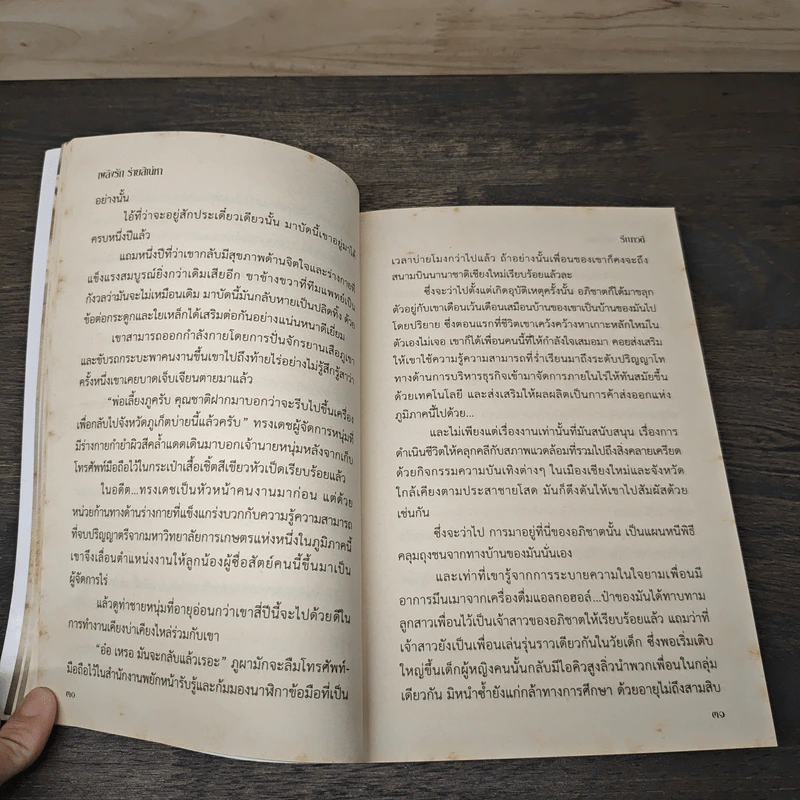 เพลิงรัก ร้ายสิเน่หา
อย่างนั้น
ไอ้ที่ว่าจะอยู่สักประเดี๋ยวเดียวนั้น มาบัดนี้เขาอยู่มาได้
ครบหนึ่งปีแล้ว
แถมหนึ่งปีที่ว่าเขากลับมีสุขภาพด้านจิตใจและร่างกายที่
แข็งแรงสมบูรณ์ยิ่งกว่าเดิมเสียอีก ขาข้างขวาที่ทีมแพทย์เป็น
กังวลว่ามันจะไม่เหมือนเดิม มาบัดนี้มันกลับหายเป็นปลิดทิ้ง ด้วย
ข้อต่อกระดูกและใยเหล็กได้เสริมต่อกันอย่างแน่นหนาดีเยี่ยม
เขาสามารถออกกำลังกายโดยการปั่นจักรยานเสือภูเขา
และขับรถกระบะพาคนงานขึ้นเขาไปถึงท้ายไร่อย่างไม่รู้สึกรู้สาว่า
ครั้งหนึ่งเขาเคยบาดเจ็บเจียนตายมาแล้ว
“พ่อเลี้ยงภูครับ คุณชาติฝากมาบอกว่าจะรีบไปขึ้นเครื่อง
เพื่อกลับไปจังหวัดภูเก็ตบ่ายนี้แล้วครับ” ทรงเดชผู้จัดการหนุ่มที่
มีร่างกายกำยำผิวสีคล้ำแดดเดินมาบอกเจ้านายหนุ่มหลังจากเก็บ
โทรศัพท์มือถือไว้ในกระเป๋าเสื้อเชิ้ตสีเขียวหัวเป็ดเรียบร้อยแล้ว
ในอดีต...ทรงเดชเป็นหัวหน้าคนงานมาก่อน แต่ด้วย
หน่วยก้านทางด้านร่างกายที่แข็งแกร่งบวกกับความรู้ความสามารถ
ที่จบปริญญาตรีจากมหาวิทยาลัยการเกษตรแห่งหนึ่งในภูมิภาคนี้
เขาจึงเลื่อนตำแหน่งงานให้ลูกน้องผู้ซื่อสัตย์คนนี้ขึ้นมาเป็น
ผู้จัดการไร่
แล้วดูท่าชายหนุ่มที่อายุอ่อนกว่าเขาสี่ปีนี้จะไปด้วยดีใน
การทำงานเคียงบ่าเคียงไหล่ร่วมกับเขา
“อ๋อ เหรอ มันจะกลับแล้วเรอะ” ภูผามักจะลืมโทรศัพท์-
มือถือไว้ในสำนักงานพยักหน้ารับรู้และก้มมองนาฬิกาข้อมือที่เป็น
๓๐
รักภาวดี
เวลาบ่ายโมงกว่าไปแล้ว ถ้าอย่างนั้นเพื่อนของเขาก็คงจะถึง
สนามบินนานาชาติเชียงใหม่เรียบร้อยแล้วละ
ซึ่งจะว่าไปตั้งแต่เกิดอุบัติเหตุครั้งนั้น อภิชาตก็ได้มาขลุก
ตัวอยู่กับเขาเดือนเว้นเดือนเสมือนบ้านของเขาเป็นบ้านของมันไป
โดยปริยาย ซึ่งตอนแรกที่ชีวิตเขาเคว้งคว้างหาเกาะหลักใหม่ใน
ตัวเองไม่เจอ เขาก็ได้เพื่อนคนนี้ที่ให้กำลังใจเสมอมา คอยส่งเสริม
ให้เขาใช้ความรู้ความสามารถที่ร่ำเรียนมาถึงระดับปริญญาโท
ทางด้านการบริหารธุรกิจเข้ามาจัดการภายในไร่ให้ทันสมัยขึ้น
ด้วยเทคโนโลยี และส่งเสริมให้ผลผลิตเป็นการค้าส่งออกแห่ง
ภูมิภาคนี้ไปด้วย...
และไม่เพียงแต่เรื่องงานเท่านั้นที่มันสนับสนุน เรื่องการ
ดำเนินชีวิตให้คลุกคลีกับสภาพแวดล้อมที่รวมไปถึงสิ่งคลายเครียด
ด้วยกิจกรรมความบันเทิงต่างๆ ในเมืองเชียงใหม่และจังหวัด
ใกล้เคียงตามประสาชายโสด มันก็ดึงดันให้เขาไปสัมผัสด้วย
เช่นกัน
ซึ่งจะว่าไป การมาอยู่ที่นี่ของอภิชาตนั้น เป็นแผนหนีพิธี
คลุมถุงชนจากทางบ้านของมันนั่นเอง
และเท่าที่เขารู้จากการระบายความในใจยามเพื่อนมี
อาการมึนเมาจากเครื่องดื่มแอลกอฮอล์...ป๋าของมันได้ทาบทาม
ลูกสาวเพื่อนไว้เป็นเจ้าสาวของอภิชาตให้เรียบร้อยแล้ว แถมว่าที่
เจ้าสาวยังเป็นเพื่อนเล่นรุ่นราวเดียวกันในวัยเด็ก ซึ่งพอเริ่มเติบ
ใหญ่ขึ้นเด็กผู้หญิงคนนั้นกลับมีไอคิวสูงลิ่วนำพวกเพื่อนในกลุ่ม
เดียวกัน มิหนำซ้ำยังแก่กล้าทางการศึกษา ด้วยอายุไม่ถึงสามสิบ
๓๑